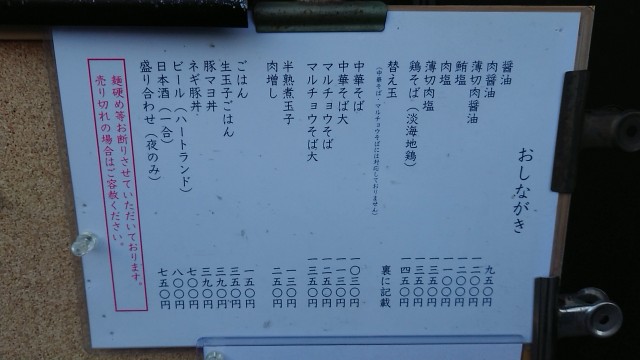 おしながき
醤油 九五〇円
肉醤油 一二〇〇円
薄切肉醤油 一二〇〇円
鮪塩 一一〇〇円
肉塩 一三五〇円
薄切肉塩 一三五〇円
鶏そば(淡海地鶏) 一四五〇円
替え玉 裏に記載
(中華そば・マルチョウそばには対応しておりません)
中華そば 一〇三〇円
中華そば大 一一三〇円
マルチョウそば 一二五〇円
マルチョウそば大 一三五〇円
半熟煮玉子 一三〇円
肉増し 二五〇円
ごはん 一五〇円
生玉子ごはん
豚マヨ丼 三九〇円
ネギ豚丼 三九〇円
ビール(ハートランド) 七〇〇円
日本酒(一合) 八〇〇円
盛り合わせ(夜のみ) 七五〇円
麺硬め等お断りさせていただいております。
売り切れの場合はご容赦ください。